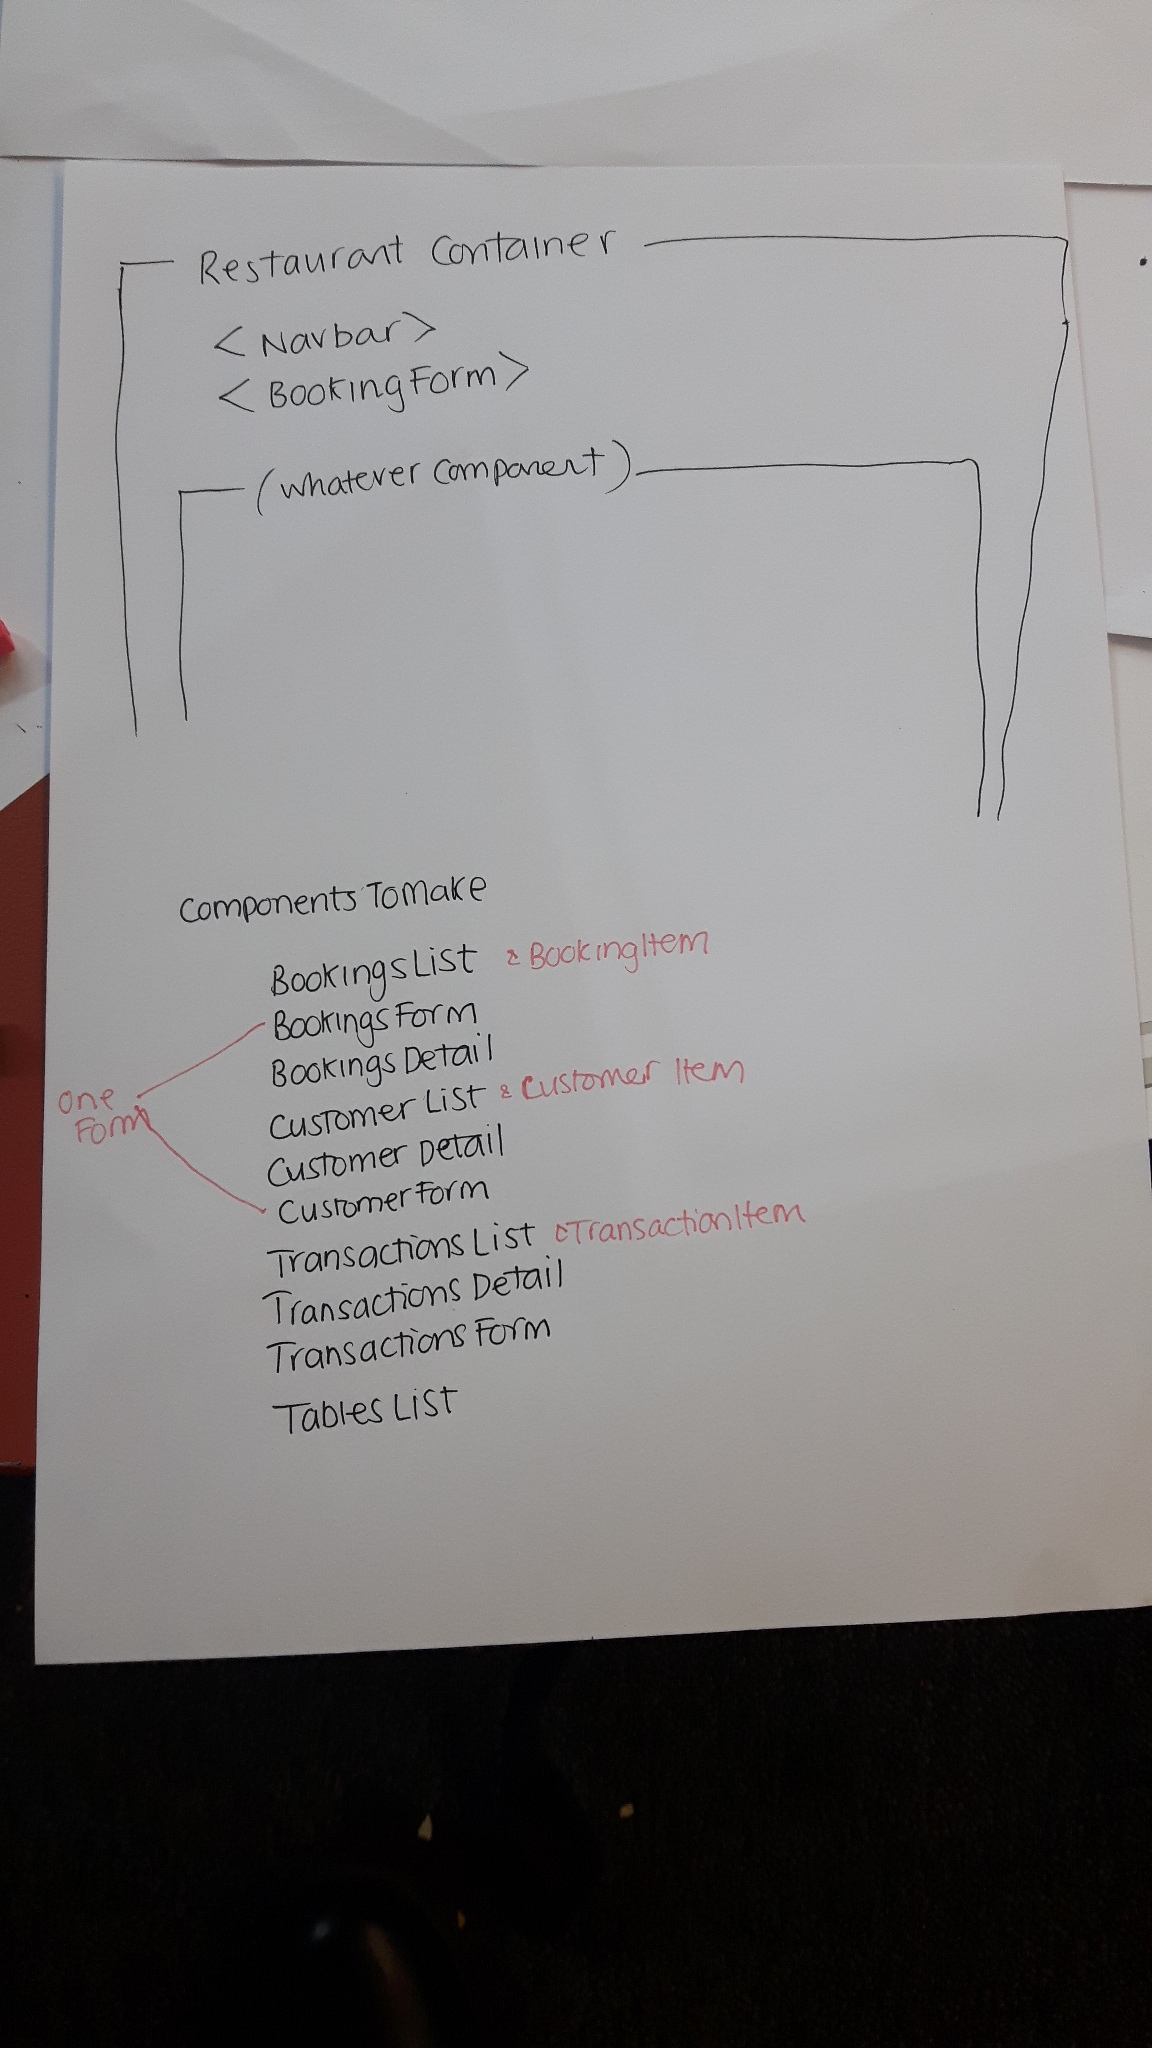 Restaurant Container
<Navbar>
<BookingForm>
(whatever component)
Components To Make
BookingsList & BookingItem
BookingsForm
Bookings Detail
Customer List & Customer Item
Customer Detail
CustomerForm
One
Form
Transactions List & TransactionItem
Transactions Detail
Transactions Form
Tables List